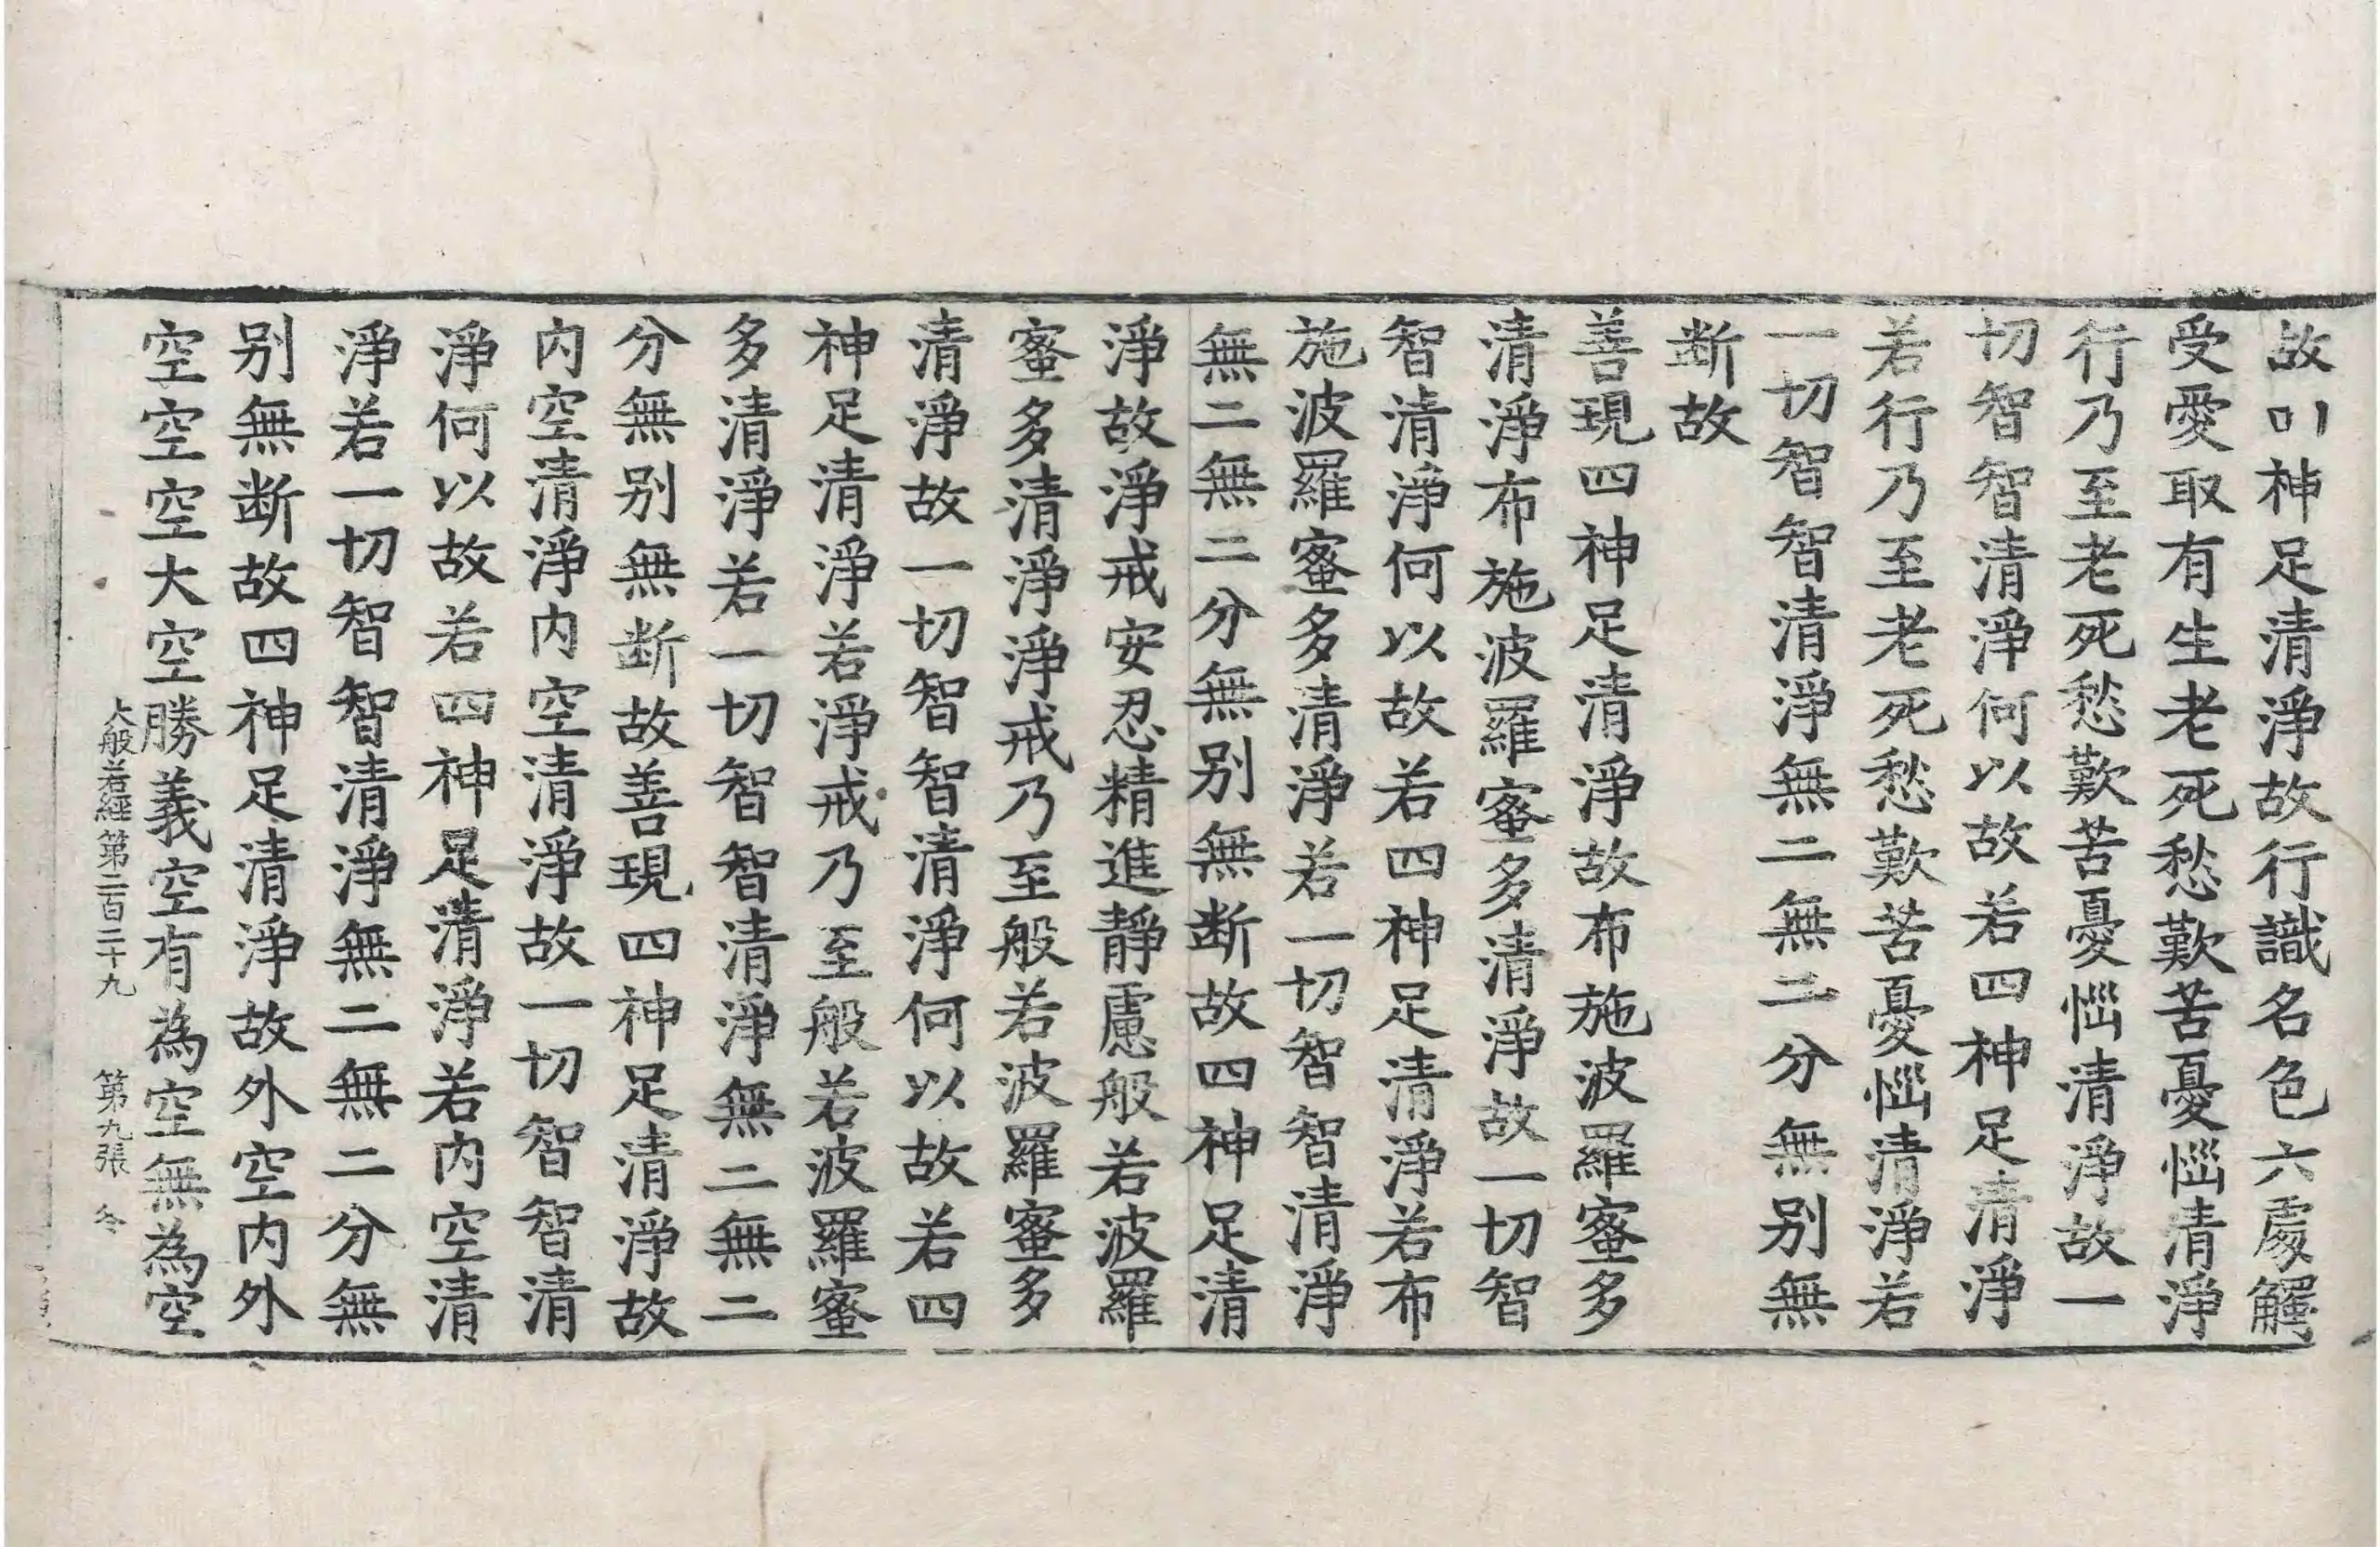 故四神足清淨故行識名色六處觸
受愛取有生老死愁歎苦憂惱清淨
行乃至老死愁歎苦憂惱清淨故一
切智智清淨何以故若四神足清淨
若行乃至老死愁歎苦憂惱清淨若
一切智智清淨無二無二分無別無
断故
善現四神足清淨故布施波羅蜜多
清淨布施波羅蜜多清淨故一切智
智清淨何以故若四神足清淨若布
施波羅蜜多清淨若一切智智清淨
無二無二分無別無断故四神足清
淨故淨戒安忍精進靜慮般若波羅
蜜多清淨淨戒乃至般若波羅蜜多
清淨故一切智智清淨何以故若四
神足清淨若淨戒乃至般若波羅蜜
多清淨若一切智智清淨無二無二
分無別無断故善現四神足清淨故
內空清淨內空清淨故一切智智清
淨何以故若四神足清淨若內空清
淨若一切智智清淨無二無二分無
別無断故四神足清淨故外空內外
空空空大空勝義空有為空無為空
大般若經第二百二十九 第九張 冬